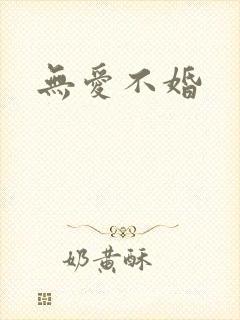 無愛不婚
奶黃酥